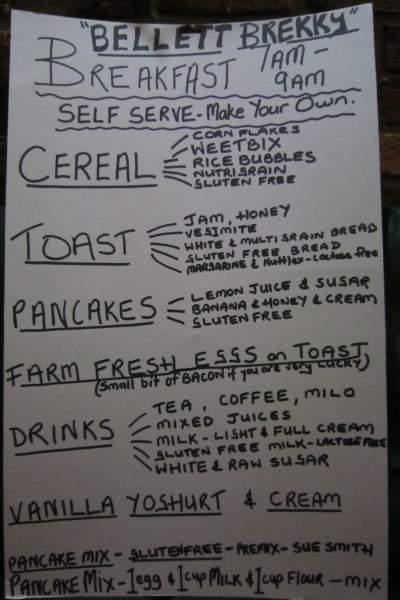 "BELLETT BREKKY"
BREAKFAST 7AM - 9AM
SELF SERVE - Make Your Own.
CEREAL
CORN FLAKES
WEETBIX
RICE BUBBLES
NUTRIGRAIN
GLUTEN FREE
TOAST
JAM, HONEY
VEGIMITE
WHITE & MULTI GRAIN BREAD
GLUTEN FREE BREAD
MARGARINE & Nuttlex - Lactose free
PANCAKES
LEMON JUICE & SUGAR
BANANA & HONEY & CREAM
GLUTEN FREE
FARM FRESH EGGS on TOAST
(Small bit of BACON if you are very LUCKY)
DRINKS
TEA, COFFEE, MILO
MIXED JUICES
MILK - LIGHT & FULL CREAM
GLUTEN FREE MILK - LACTOSE FREE
WHITE & RAW SUGAR
VANILLA YOGHURT & CREAM
PANCAKE MIX - GLUTEN FREE - PREMIX - SUE SMITH
PANCAKE Mix - 1 egg & 1 cup MILK & 1 cup FLOUR - MIX